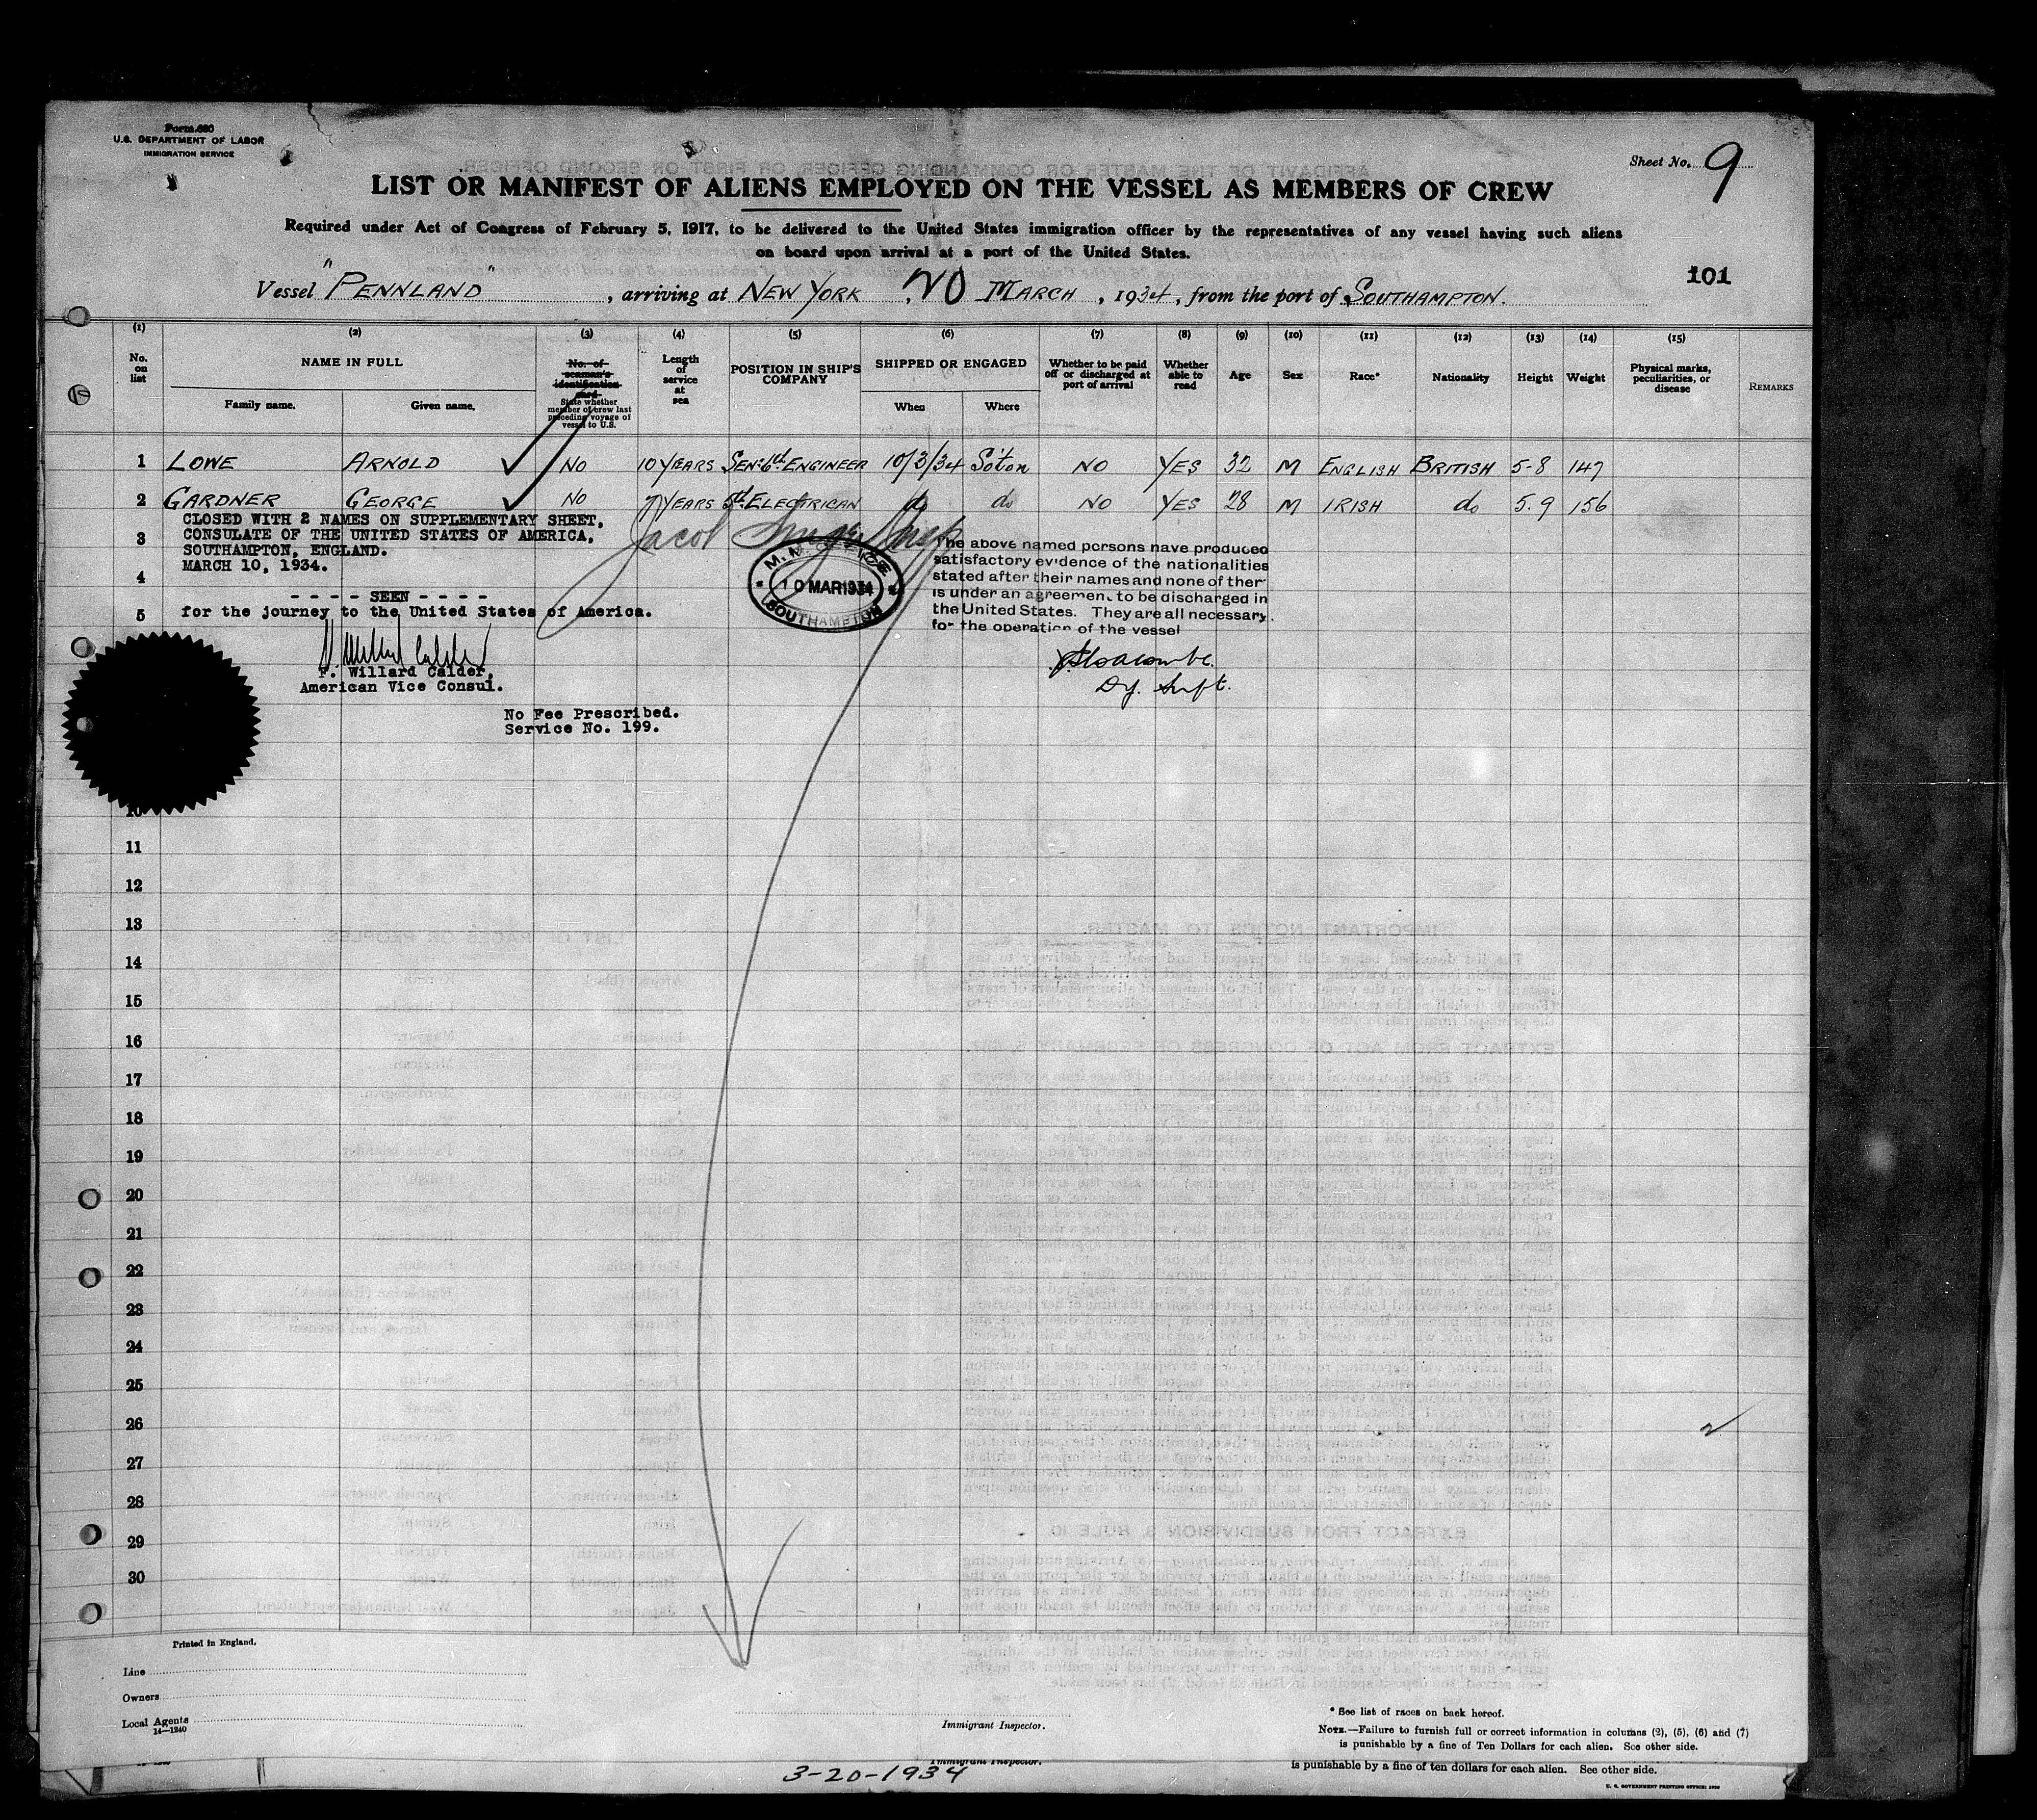 Form 680
U.S. DEPARTMENT OF LABOR
IMMIGRATION SERVICE
Sheet No. 9
LIST OR MANIFEST OF ALIENS EMPLOYED ON THE VESSEL AS MEMBERS OF CREW
Required under Act of Congress of February 5, 1917, to be delivered to the United States immigration officer by the representatives of any vessel having such aliens
on board upon arrival at a port of the United States.
101
Vessel "PENNLAND", arriving at NEW YORK, 20 MARCH, 1934, from the port of SOUTHAMPTON.
(1) (2) (3) (4) (5) (6) (7) (8) (9) (10) (11) (12) (13) (14) (15)
No. on list
NAME IN FULL
Family name. Given name.
No. of seaman's identification card
State whether member of crew last preceding voyage of vessel to U.S.
Length of service at sea
POSITION IN SHIP'S COMPANY
SHIPPED OR ENGAGED
When Where
Whether to be paid off or discharged at port of arrival
Whether able to read
Age
Sex
Race*
Nationality
Height
Weight
Physical marks, peculiarities, or disease
REMARKS
1 LOWE ARNOLD NO 10 YEARS SEN. 6th ENGINEER 10/3/34 So'ton NO YES 32 M ENGLISH BRITISH 5-8 147
2 GARDNER GEORGE NO 7 YEARS 5th ELECTRICAN do do NO YES 28 M IRISH do 5.9 156
CLOSED WITH 2 NAMES ON SUPPLEMENTARY SHEET,
3 CONSULATE OF THE UNITED STATES OF AMERICA,
SOUTHAMPTON, ENGLAND.
MARCH 10, 1934.
4
- - - - SEEN - - - -
5 for the journey to the United States of America.
F. Willard Calder,
American Vice Consul.
No Fee Prescribed.
Service No. 199.
Jacob
M.M. OFFICE
10 MAR 1934
SOUTHAMPTON
The above named persons have produced
satisfactory evidence of the nationalities
stated after their names and none of ther
is under an agreement to be discharged in
the United States. They are all necessary
for the operation of the vessel
Dy. Supt.
10
11
12
13
14
15
16
17
18
19
20
21
22
23
24
25
26
27
28
29
30
Printed in England.
Line
Owners
Local Agents
14—1240
Immigrant Inspector.
* See list of races on back hereof.
NOTE.—Failure to furnish full or correct information in columns (2), (5), (6) and (7)
is punishable by a fine of Ten Dollars for each alien. See other side.
Immigrant Inspector.
3-20-1934
is punishable by a fine of ten dollars for each alien. See other side.
U. S. GOVERNMENT PRINTING OFFICE: 1930